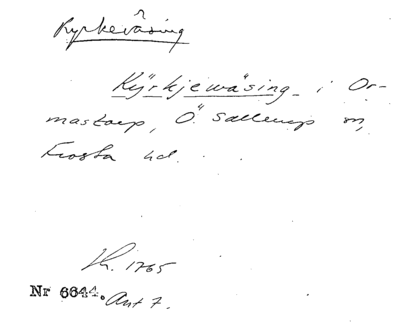 Kyrkevåsing
Kÿrkjewåsing i Or-
mastorp, Ö Sallerup sn,
Frosta hd.
Lh. 1765
Nr 6644. Ant 7.